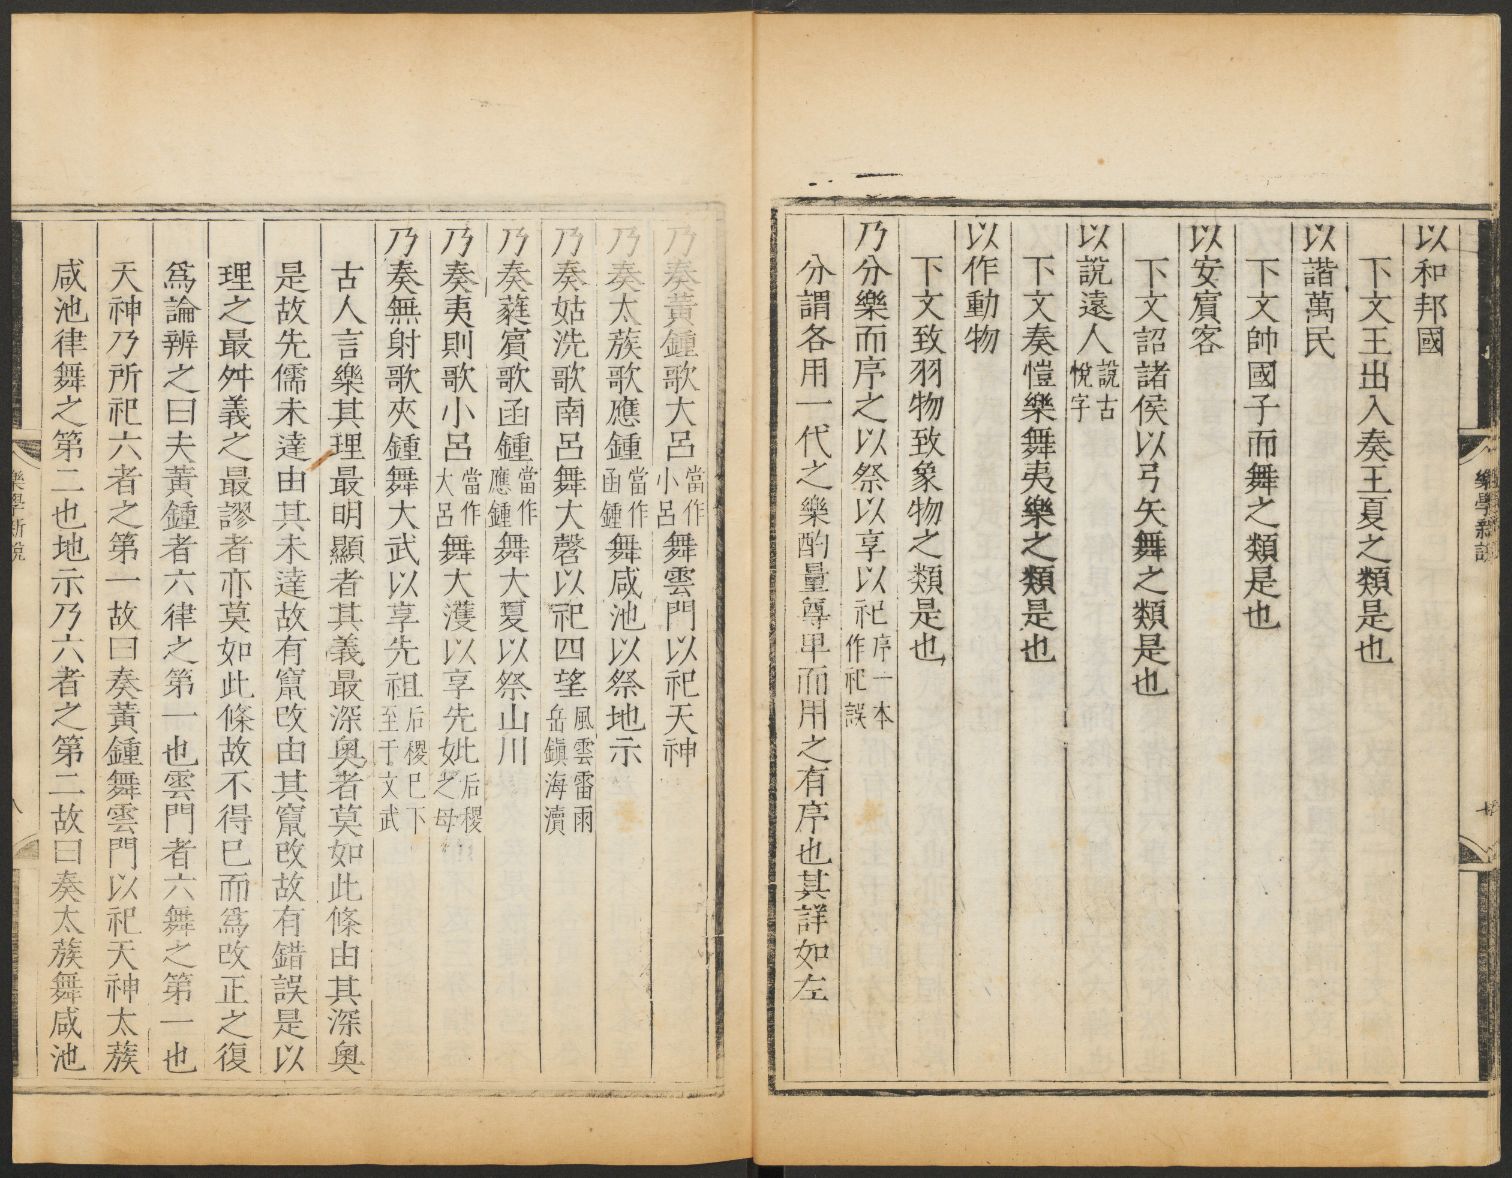 以和邦國
下文王出入奏王夏之類是也
以諧萬民
下文帥國子而舞之類是也
以安賔客
下文詔諸侯以弓矢舞之類是也
以說遠人說古悅字
下文奏愷樂舞夷樂之類是也
以作動物
下文致羽物致象物之類是也
乃分樂而序之以祭以享以祀序一本作祀誤
分謂各用一代之樂酌量尊卑而用之有序也其詳如左
乃奏黃鍾歌大呂當作小呂舞雲門以祀天神
乃奏太蔟歌應鍾當作函鍾舞咸池以祭地示
乃奏姑洗歌南呂舞大磬以祀四望風雲雷雨岳鎮海瀆
乃奏蕤賔歌函鍾當作應鍾舞大夏以祭山川
乃奏夷則歌小呂當作大呂舞大濩以享先妣后稷之母
乃奏無射歌夾鍾舞大武以享先祖后稷已下至于文武
古人言樂其理最明顯者其義最深奧者莫如此條由其深奧
是故先儒未達由其未達故有竄改由其竄改故有錯誤是以
理之最舛義之最謬者亦莫如此條故不得已而爲改正之復
爲論辨之曰夫黃鍾者六律之第一也雲門者六舞之第一也
天神乃所祀六者之第一故曰奏黃鍾舞雲門以祀天神太蔟
咸池律舞之第二也地示乃六者之第二故曰奏太蔟舞咸池
樂學新說
八